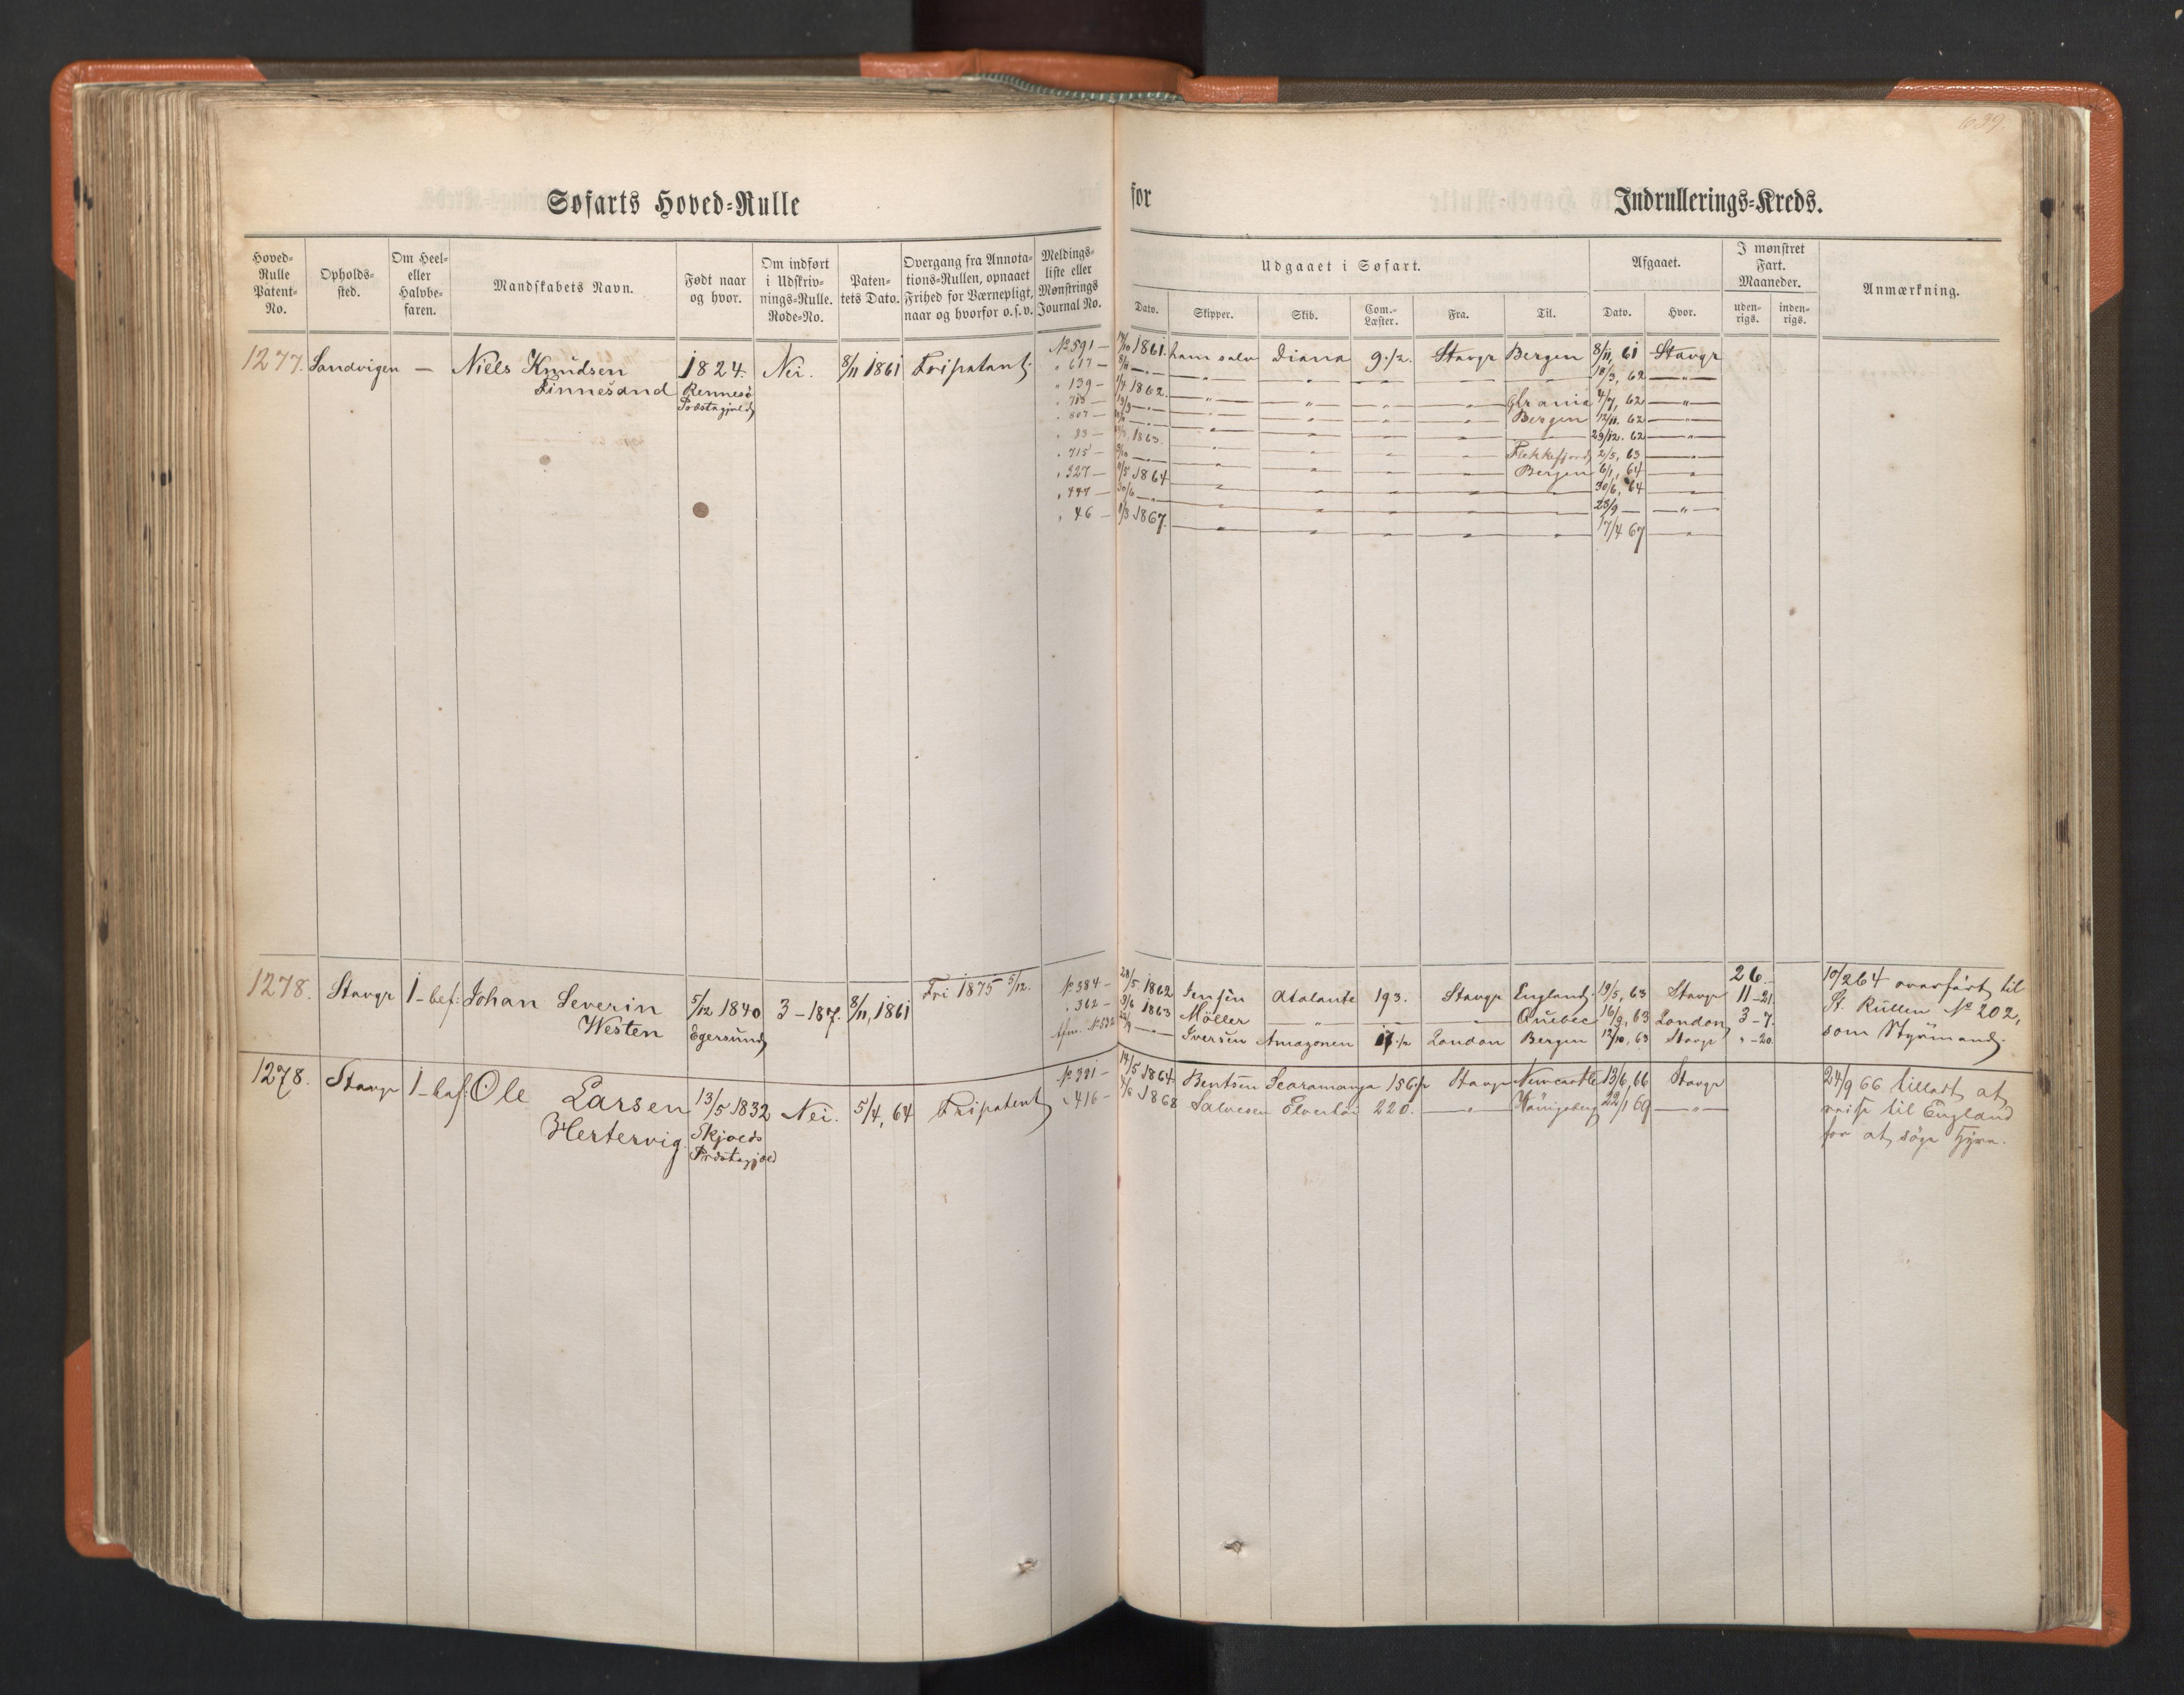 639.
Søfarts Hoved=Rulle
for Indrullerings=Kreds.
Hoved= Rulle Patent= No.
Opholds= sted.
Om Heel= eller Halvbe= faren.
Mandskabets Navn.
Født naar og hvor.
Om indført i Udskriv= nings=Rulle. Rode=No.
Paten= tets Dato.
Overgang fra Annota= tions=Rullen, opnaaet Frihed for Værnepligt, naar og hvorfor o.s.v.
Meldings= liste eller Mønstrings Journal No.
Udgaaet i Søfart.
Dato.
Skipper.
Skib.
Com.= Læster.
Fra.
Til.
Afgaaet.
Dato.
Hvor.
I mønstret Fart. Maaneder.
uden= rigs.
inden= rigs.
Anmærkning.
1277. Sandvigen — Niels Knudsen 1824. Nei. 8/11 1861 Fripatent. No 591 — 1861. ham selv Diana 9 1/2. Stavgr Bergen 8/11, 61 Stavgr
Finnesand Rennesø " 617 — 8/11 — " — — " — — " — — " — — " — 18/3, 62 — " —
Præstegjeld " 139 — 1/4 1862. — " — — " — — " — — " — 4/7, 62 — " —
— " — — " — — " — — " — Bergen 12/11. 62 — " —
" 807 — — " — — " — — " — — " — — 29/12. 62 — " —
" 83 — 1863. — " — — " — — " — — " — Flekkefjord 2/5, 63 — " —
" 715 — — " — — " — — " — — " — Bergen 6/1, 64 — " —
" 327 — 1/5 1864 — " — — " — — " — — " — — " — 30/6, 64 — " —
" 447 — 30/6 — " — — " — — " — — " — — " — — " — 28/9 — — " —
" 46 — 1/3 1867. — " — — " — — " — — " — — " — 17/4 67 — " —
1278. Stavgr 1 - bef: Johan Severin 5/12 1840 3 - 187. 8/11, 1861 Fri 1875 5/12. No 384 — 28/5 1862 Jensen Atalante 193. Stavgr England 19/5, 63 Stavgr 26. 11 - 21. 10/2 64 overført til
Westen Egersund " 362 — 3/6 1863 Möller — " — — — " — Quebec 16/9, 63 London 3 - 7. St. Rullen No 202,
No 532 — " — Iversen Amazonen 17 1/2 London Bergen 12/10, 63 Stavgr " - 20. som Styrmand.
1278. Stavgr 1 - bef: Ole Larsen 13/5 1832 Nei. 5/4, 64 Fripatent No 391 — 14/5 1864 Bentsen Scaramanga 156 1/2 Stavgr Newcastle 13/6, 66 Stavgr 24/9 66 tilladt at
Hertervig. Skjolds " 416 — 4/6 1868 Salvesen 220. — " — Königsberg 22/1 69 — " — reise til England
Præstegjeld for at søge Hyre.